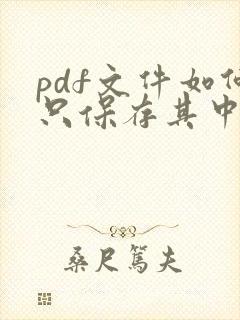 pdf文件如何
只保存其中
桑尺篤夫